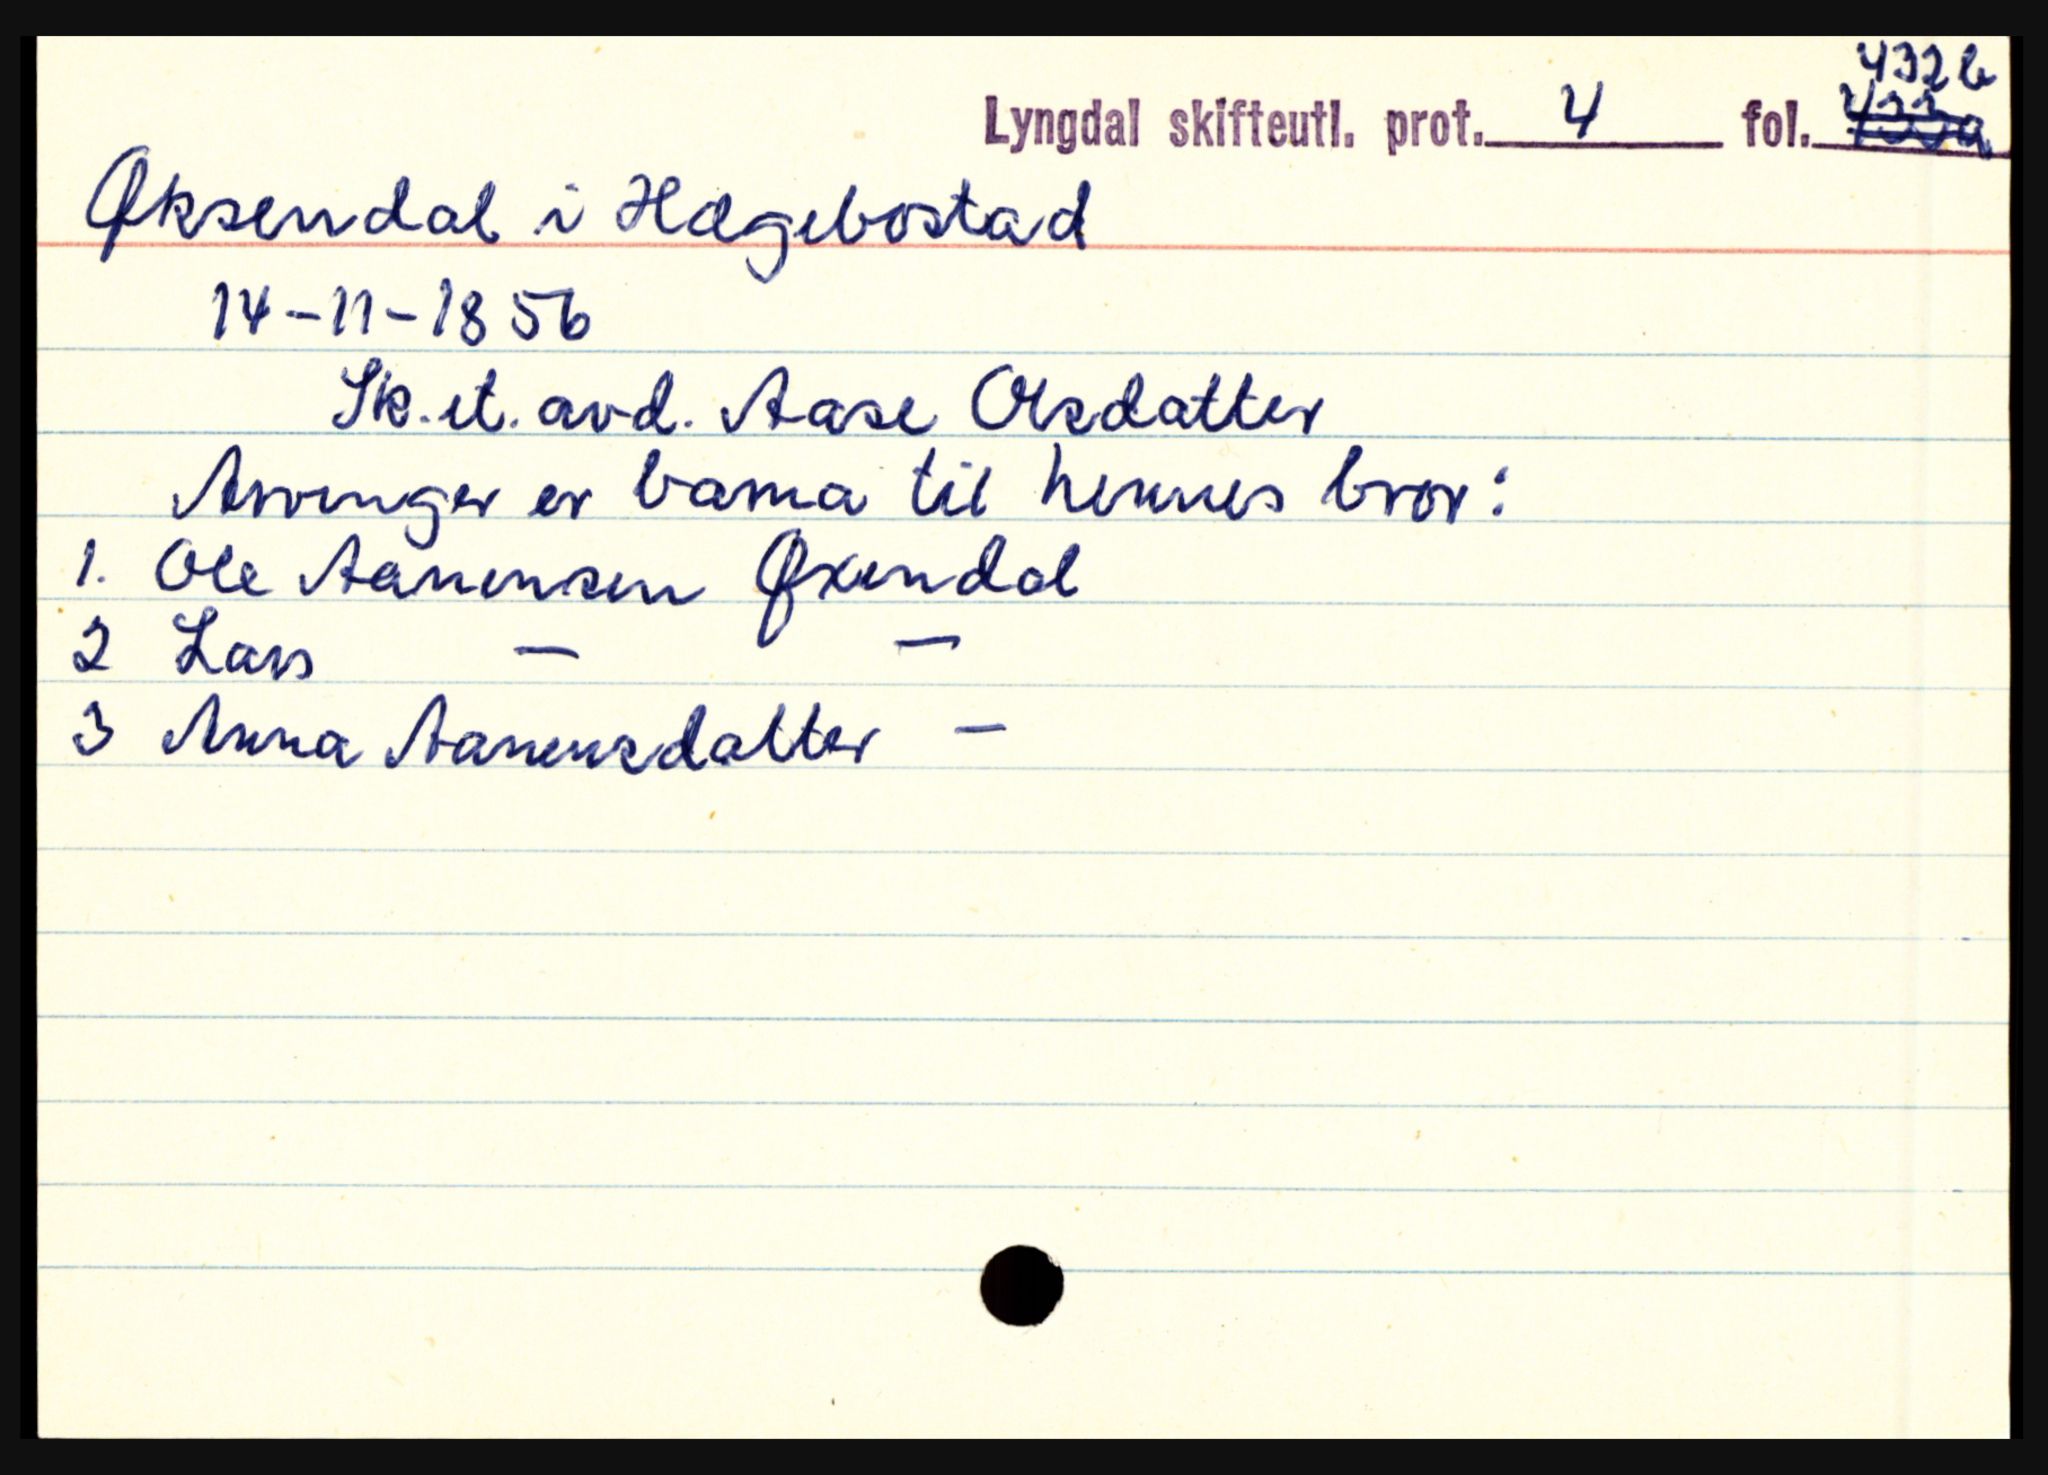 432 b
Lyngdal skifteutl. prot. 4 fol. 433a
Øksendal i Hægebostad
14-11-1856
Sk. et. avd. Aase Olsdatter
Arvinger er barna til hennes bror:
1. Ole Aanensen Øxendal
2 Lars — —
3 Anna Aanensdatter —